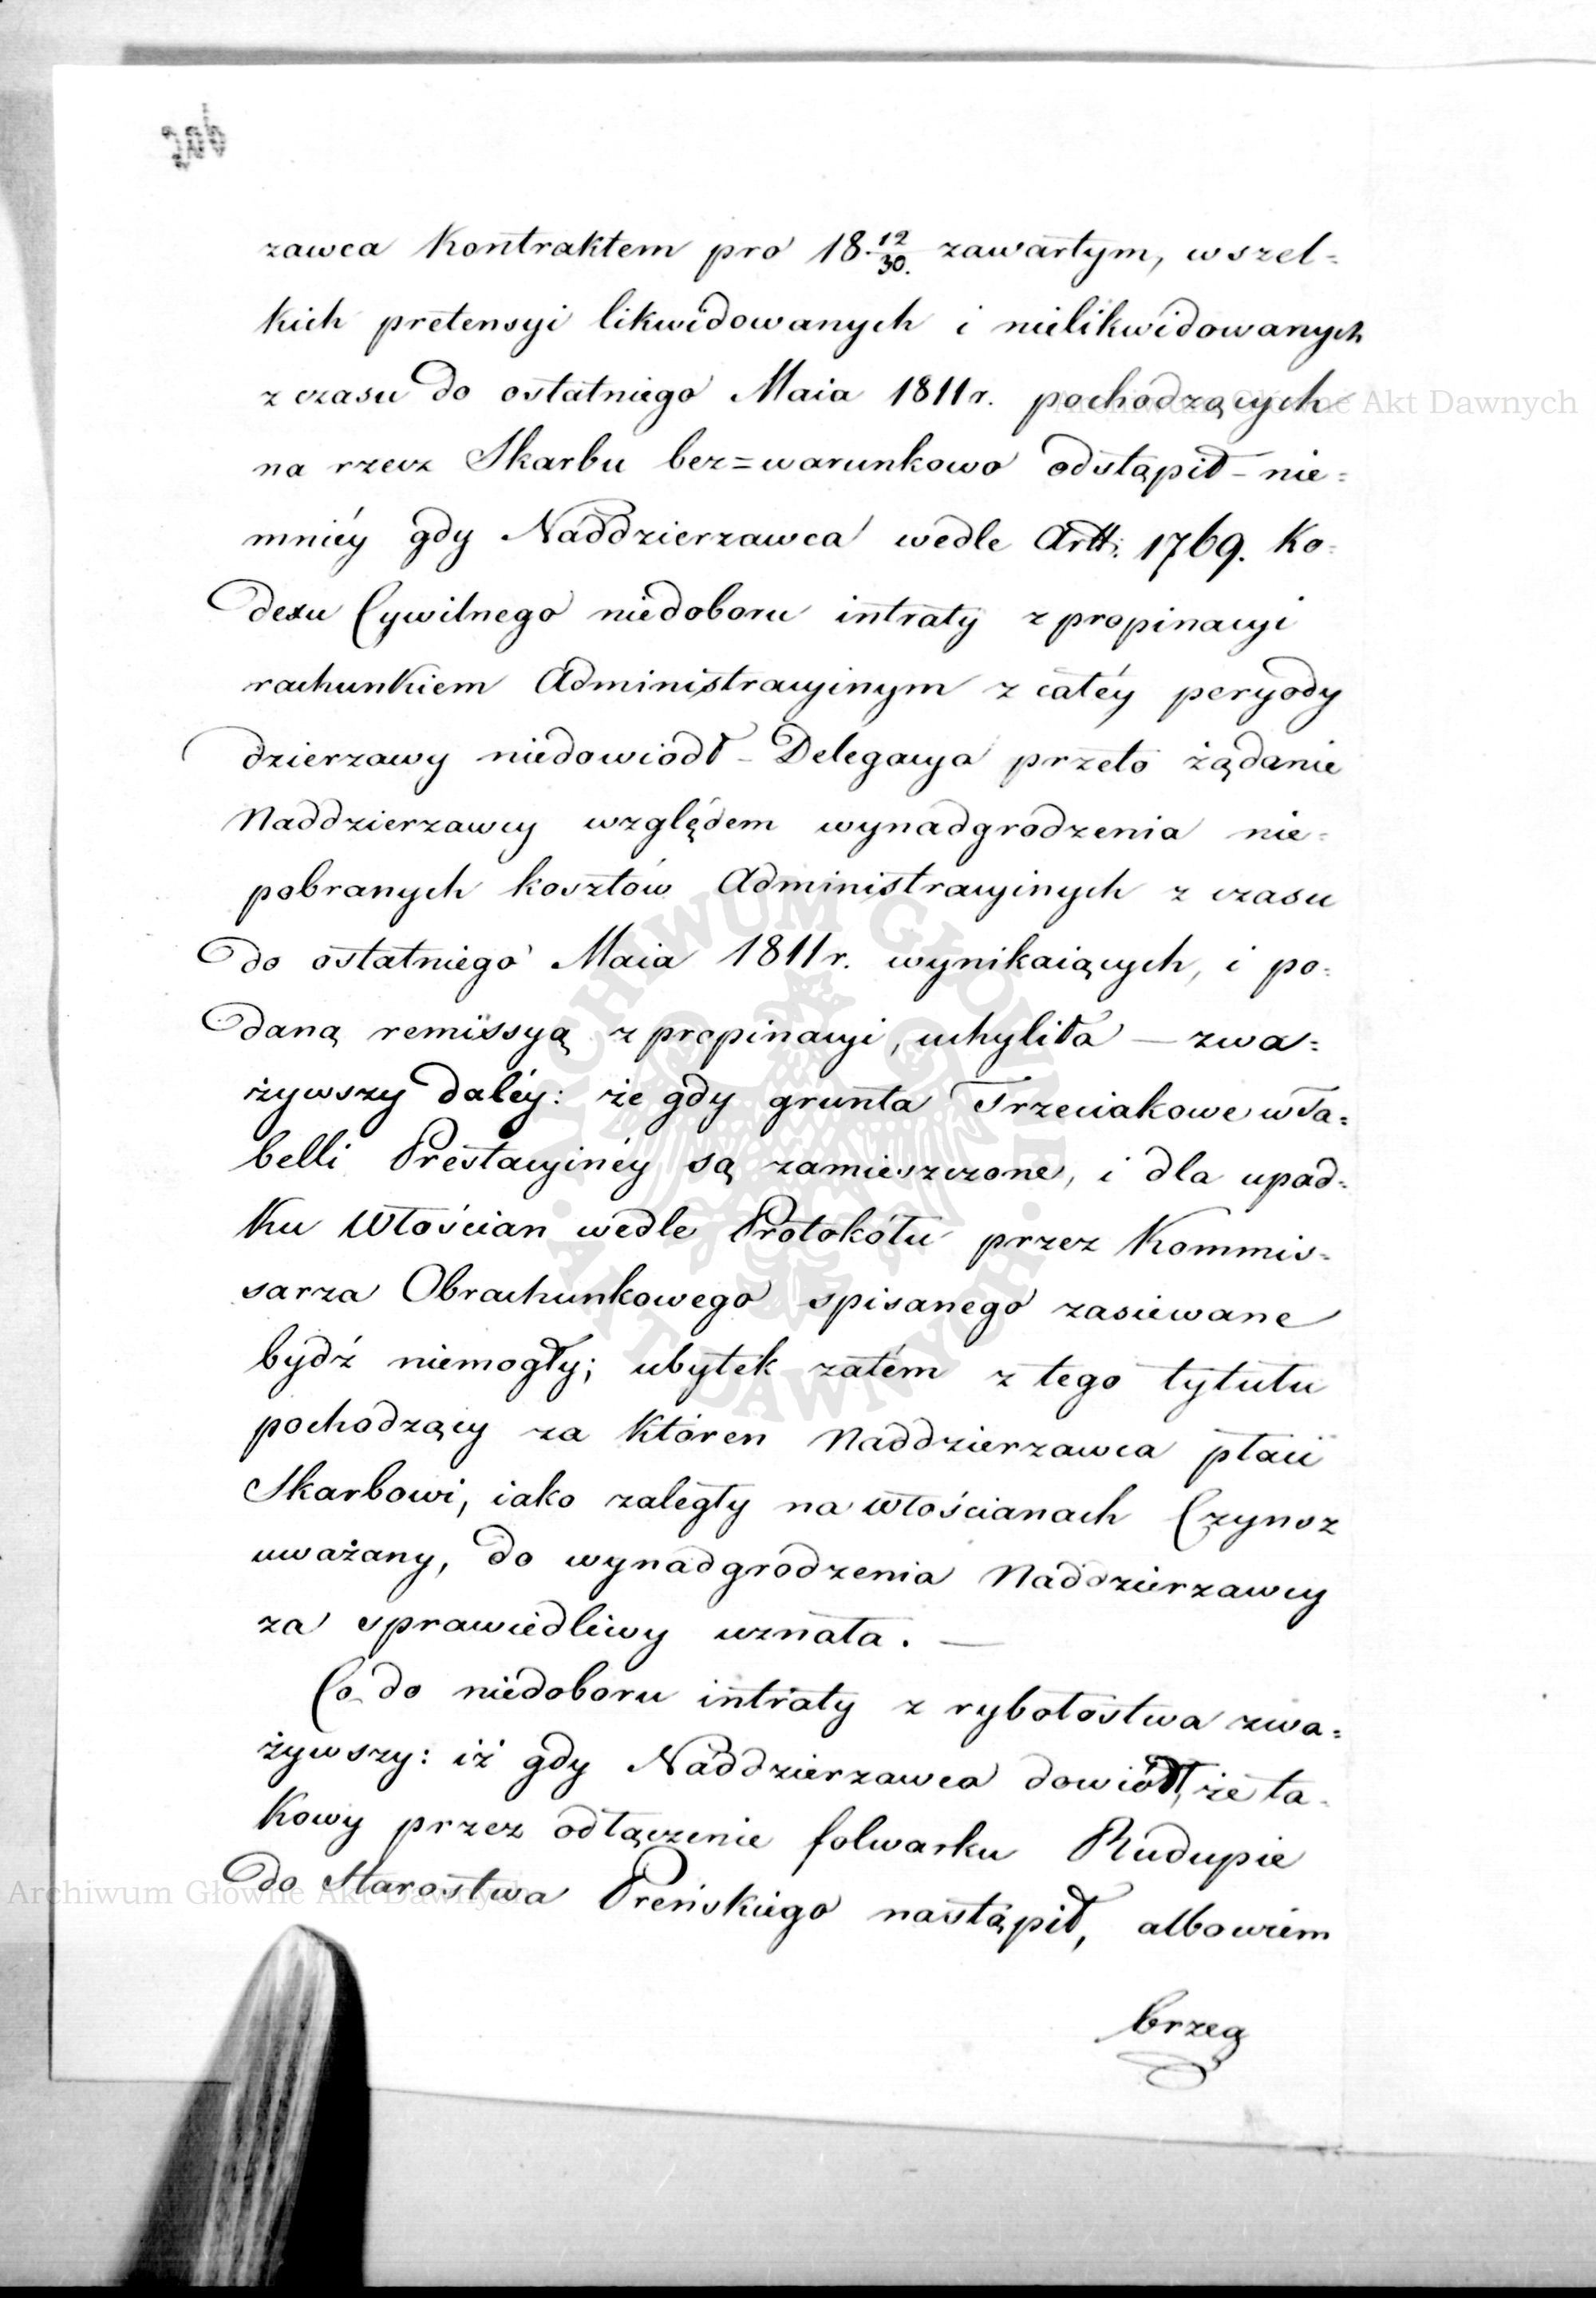 206
zawca Kontraktem pro 18 12/30. zawartym, wszel=
kich pretensyi likwidowanych i nielikwidowanych
z czasu do ostatniego Maia 1811 r. pochodzących
na rzecz Skarbu bez=warunkowo odstąpił – nie=
mniéy gdy Naddzierzawca wedle Artt: 1769. Ko=
dexu Cywilnego niedoboru intraty z propinacyi
rachunkiem Administracyinym z całéy peryody
dzierzawy niedowiódł – Delegacya przeto żądanie
Naddzierzawcy względem wynadgrodzenia nie=
pobranych kosztów Administracyinych z czasu
do ostatniego Maia 1811 r. wynikaiących, i po=
daną remissyą z propinacyi, uchyliła — zwa=
żywszy daléy: że gdy grunta Trzeciakowe w Ta=
belli Prestacyinéy są zamieszczone, i dla upad=
ku Włościan wedle Protokółu przez Kommis=
sarza Obrachunkowego spisanego zasiewane
bydź niemogły; ubytek zatém z tego tytułu
pochodzący za któren Naddzierzawca płaci
Skarbowi, iako zaległy na Włościanach Czynsz
uważany, do wynadgrodzenia Naddzierzawcy
za sprawiedliwy uznała. —
Co do niedoboru intraty z rybołostwa zwa=
żywszy: iż gdy Naddzierzawca dowiódł, że ta=
kowy przez odłączenie folwarku Rudupie
do Starostwa Preńskiego nastąpił, albowiem
brzeg
Archiwum Główne Akt Dawnych
Archiwum Główne Akt Dawnych
ARCHIWUM GŁÓWNE · AKT DAWNYCH ·